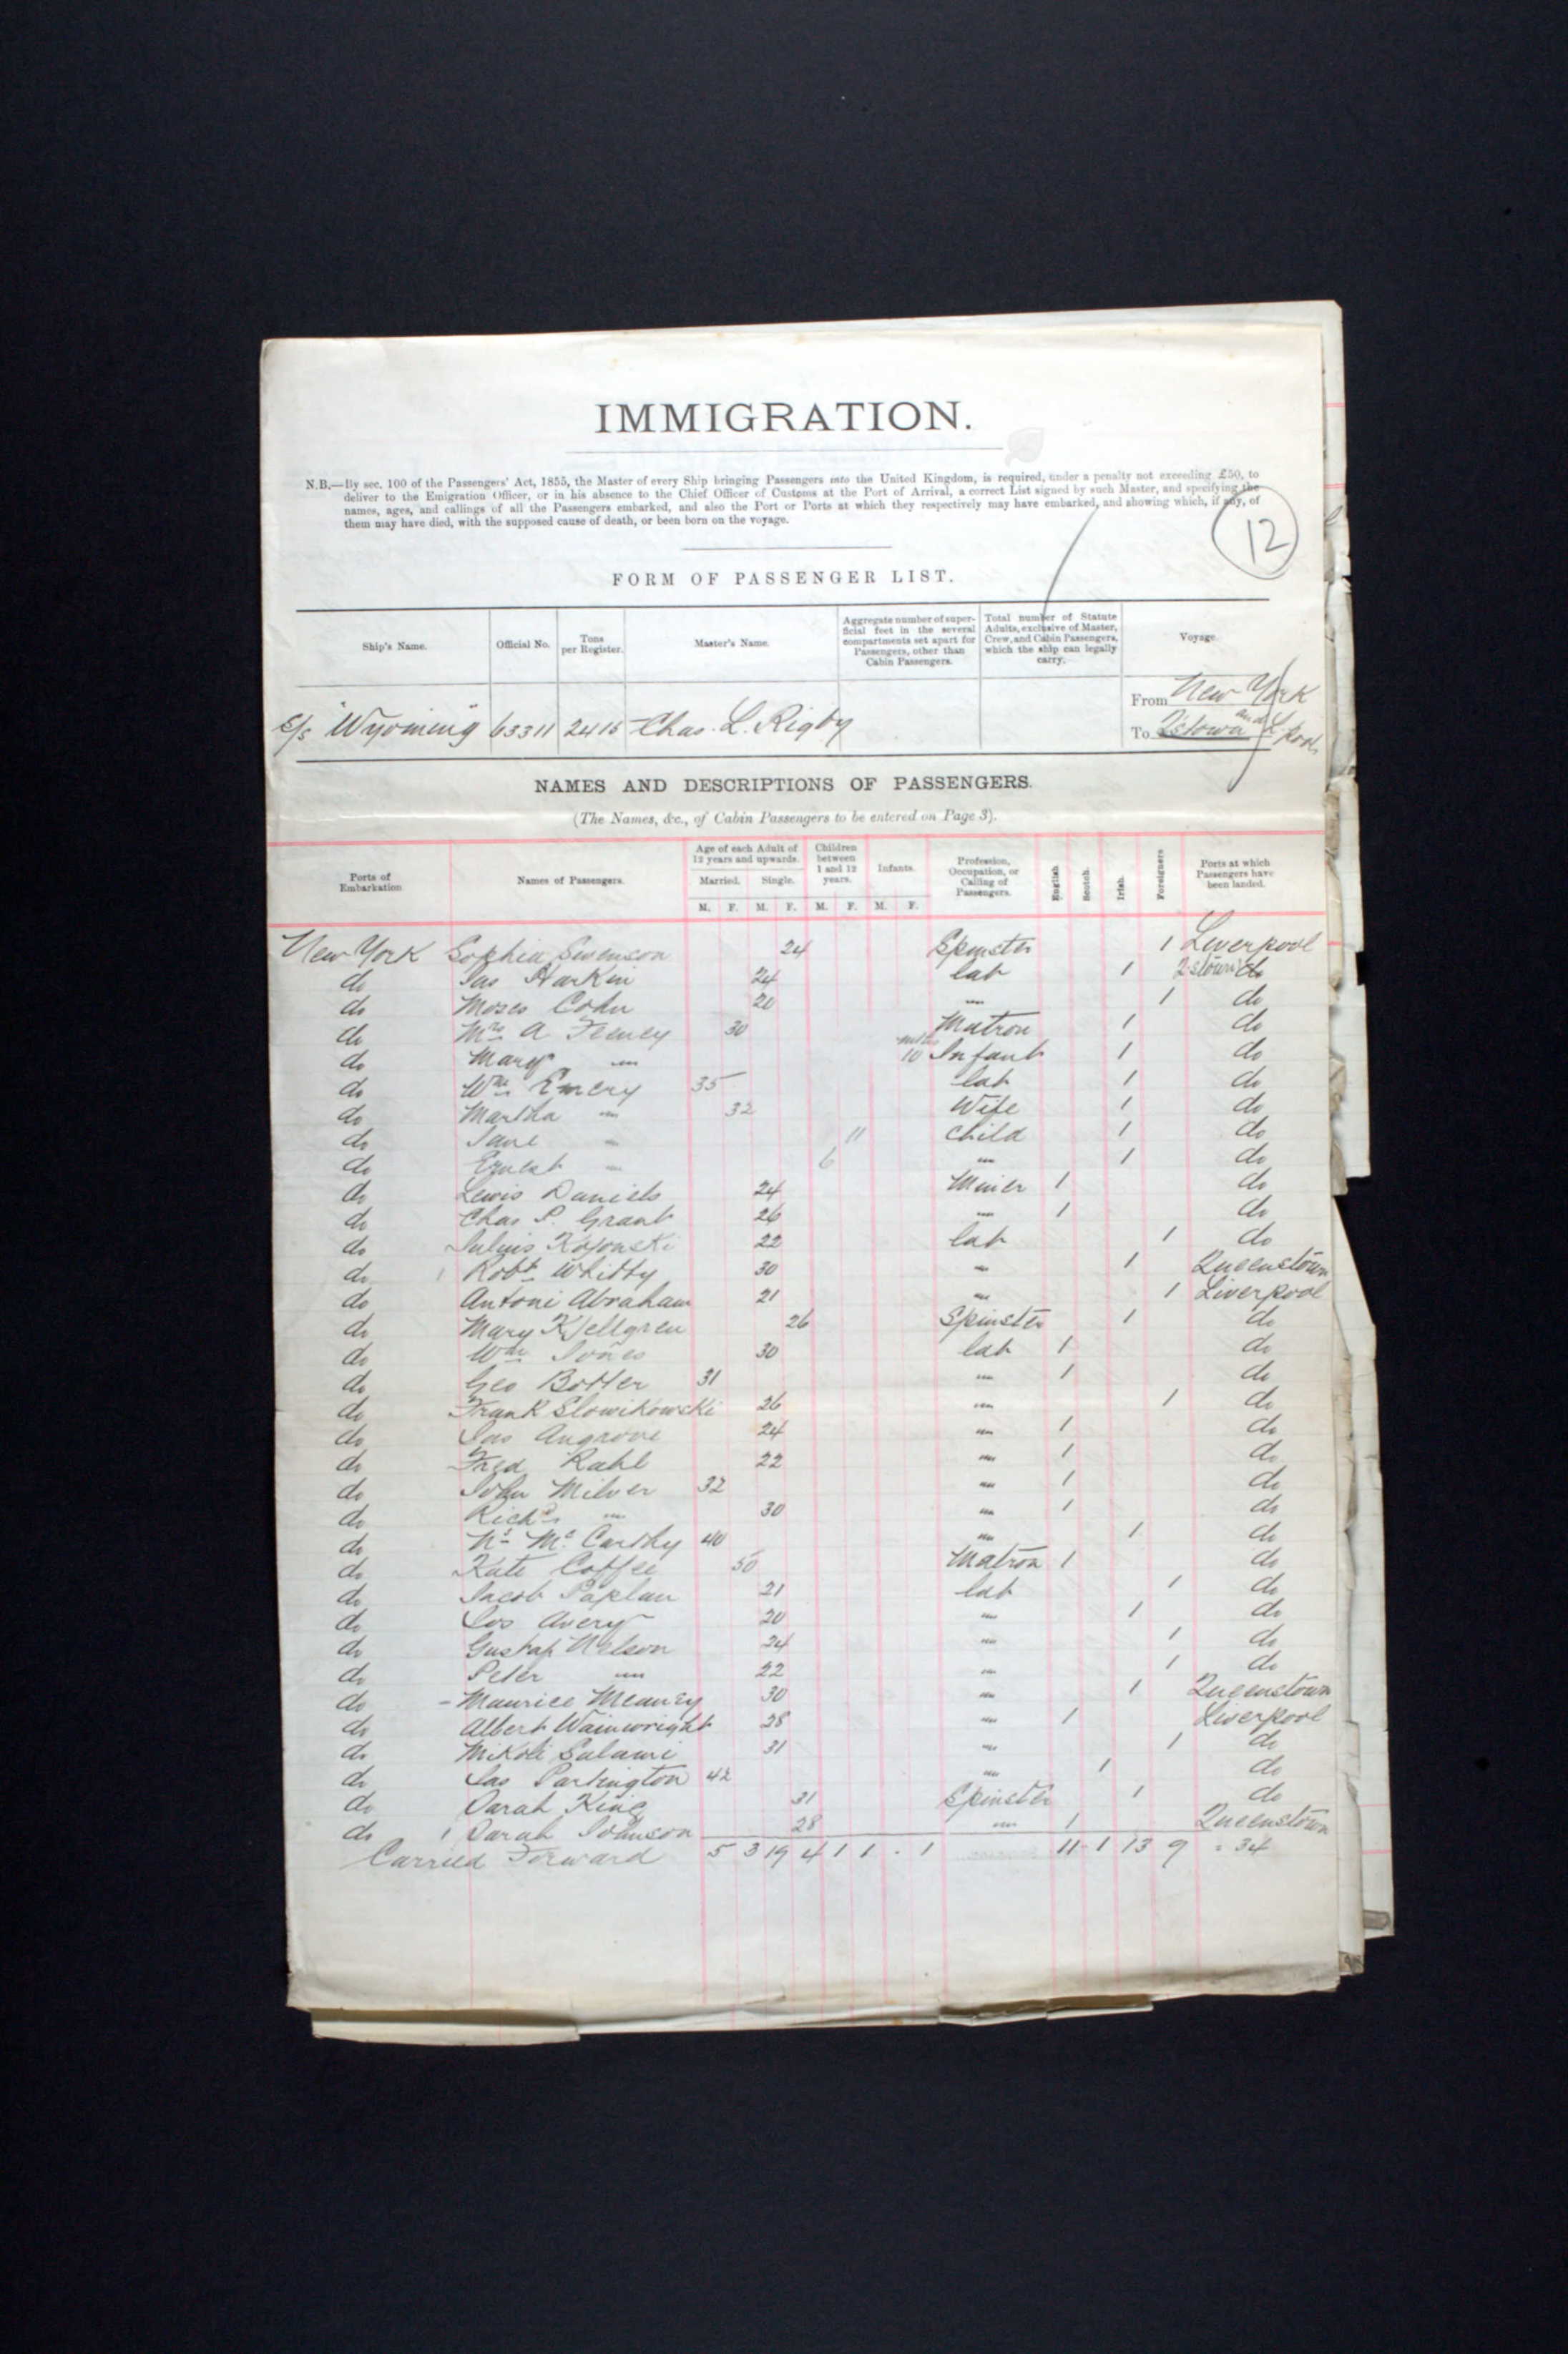 IMMIGRATION.
N.B.—By sec. 100 of the Passengers' Act, 1855, the Master of every Ship bringing Passengers into the United Kingdom, is required, under a penalty not exceeding £50, to
deliver to the Emigration Officer, or in his absence to the Chief Officer of Customs at the Port of Arrival, a correct List signed by such Master, and specifying the
names, ages, and callings of all the Passengers embarked, and also the Port or Ports at which they respectively may have embarked, and showing which, if any, of
them may have died, with the supposed cause of death, or been born on the voyage.
12
FORM OF PASSENGER LIST.
Ship's Name. Official No. Tons per Register. Master's Name. Aggregate number of superficial feet in the several compartments set apart for Passengers, other than Cabin Passengers. Total number of Statute Adults, exclusive of Master, Crew, and Cabin Passengers, which the ship can legally carry. Voyage.
From New York
S/s "Wyoming" 63311 2415 Chas. L. Rigby
To Q'stown and L'pool
NAMES AND DESCRIPTIONS OF PASSENGERS.
(The Names, &c., of Cabin Passengers to be entered on Page 3).
Ports of Embarkation Names of Passengers. Age of each Adult of 12 years and upwards. Married. Single. Children between 1 and 12 years. Infants. Profession, Occupation, or Calling of Passengers. English. Scotch. Irish. Foreigners Ports at which Passengers have been landed.
M. F. M. F. M. F. M. F.
New York Sophia Swenson 24 Spinster 1 Liverpool
do Jas Harkin 24 lab 1 Q'stown do
do Moses Cohn 20 " 1 do
do Mrs A Feeney 30 Matron 1 do
do Mary " mths 10 Infant 1 do
do Wm Emery 35 lab 1 do
do Martha " 32 Wife 1 do
do Jane " 11 child 1 do
do Ernest " 6 " 1 do
do Lewis Daniels 24 Miner 1 do
do Chas P. Grant 26 " 1 do
do Julius 22 lab 1 do
do 1 Robt Whitty 30 " 1 Queenstown
do Antoni Abraham 21 " 1 Liverpool
do Mary Kjellgren 26 Spinster 1 do
do Wm Jones 30 lab 1 do
do Geo Botter 31 " 1 do
do Frank Slowikowski 26 " 1 do
do Jas Angrove 24 " 1 do
do Fred Rahl 22 " 1 do
do John Milner 32 " 1 do
do Richd " 30 " 1 do
do Mc Carthy 40 " 1 do
do Kate Coffee 50 Matron 1 do
do Jacob Paplau 21 lab 1 do
do Jos Avery 20 " 1 do
do Gustaf Nelson 24 " 1 do
do Peter " 22 " 1 do
do - Maurice Meaney 30 " 1 Queenstown
do Albert Wainwright 28 " 1 Liverpool
do Mikoli Salami 31 " 1 do
do Jas Partington 42 " 1 do
do Sarah King 31 Spinster 1 do
do 1 Sarah Johnson 28 " 1 Queenstown
Carried Forward 5 3 19 4 1 1 . 1 11 1 13 9 = 34